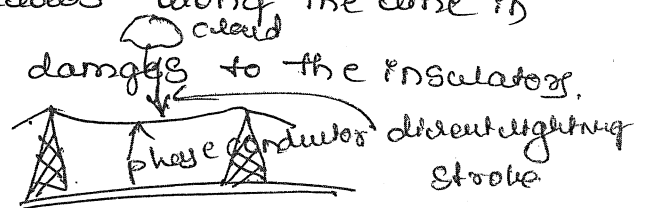 along the line in
cloud
damges to the insulators.
phase conductor
direct lightning
stroke